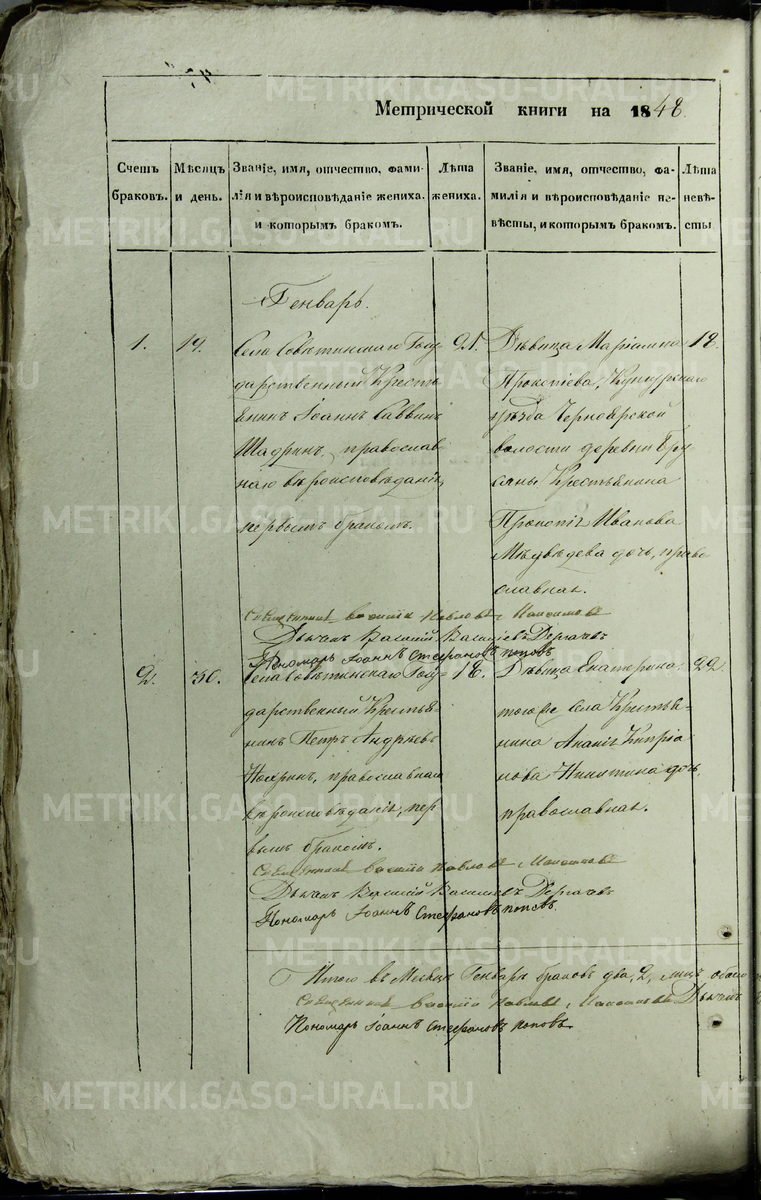 Метрической книги на 1848.
Счетъ браковъ.
Мѣсяцъ и день.
Званіе, имя, отчество, фами-
лія и вѣроисповѣданіе жениха.
и которымъ бракомъ.
Лѣта жениха.
Званіе, имя, отчество, фа-
милія и вѣроисповѣданіе не-
вѣсты, и которымъ бракомъ.
Лѣта невѣ-
сты
Генварь.
1.
19.
Села Совѣтинскаго Госу
дарственный Кресть
янинъ Іоаннъ Саввинъ
Шадринъ, православ
наго вѣроисповѣданія,
первымъ бракомъ.
21.
Дѣвица Маріамна
Прокопіева, Кунгурскаго
уѣзда Черноярской
волости деревни Бру
сяны Крестьянина
Прокопія Иванова
Медвѣдева дочь, право
славная.
18.
Священникъ Василій Павловъ
Дьячекъ Василій Васильевъ Дергачевъ
Пономарь Іоаннъ Стефановъ Поповъ
2.
30.
Села Совѣтинскаго Госу-
дарственный Крестья-
нинъ Петръ Андреевъ
православнаго
вѣроисповѣданія, пер
вымъ бракомъ.
18.
Дѣвица Екатерина
того же села Крестья-
нина Ананія Кипріа
нова Никитина дочь
православная.
22
Священникъ Василій Павловъ
Дьячекъ Василій Васильевъ Дергачевъ
Пономарь Іоаннъ Стефановъ Поповъ.
Итого въ Месяцѣ Генварѣ браковъ два, 2, лицъ обоего
Священникъ Василій Павловъ Дьячекъ
Пономарь Іоаннъ Стефановъ Поповъ
METRIKI.GASO-URAL.RU